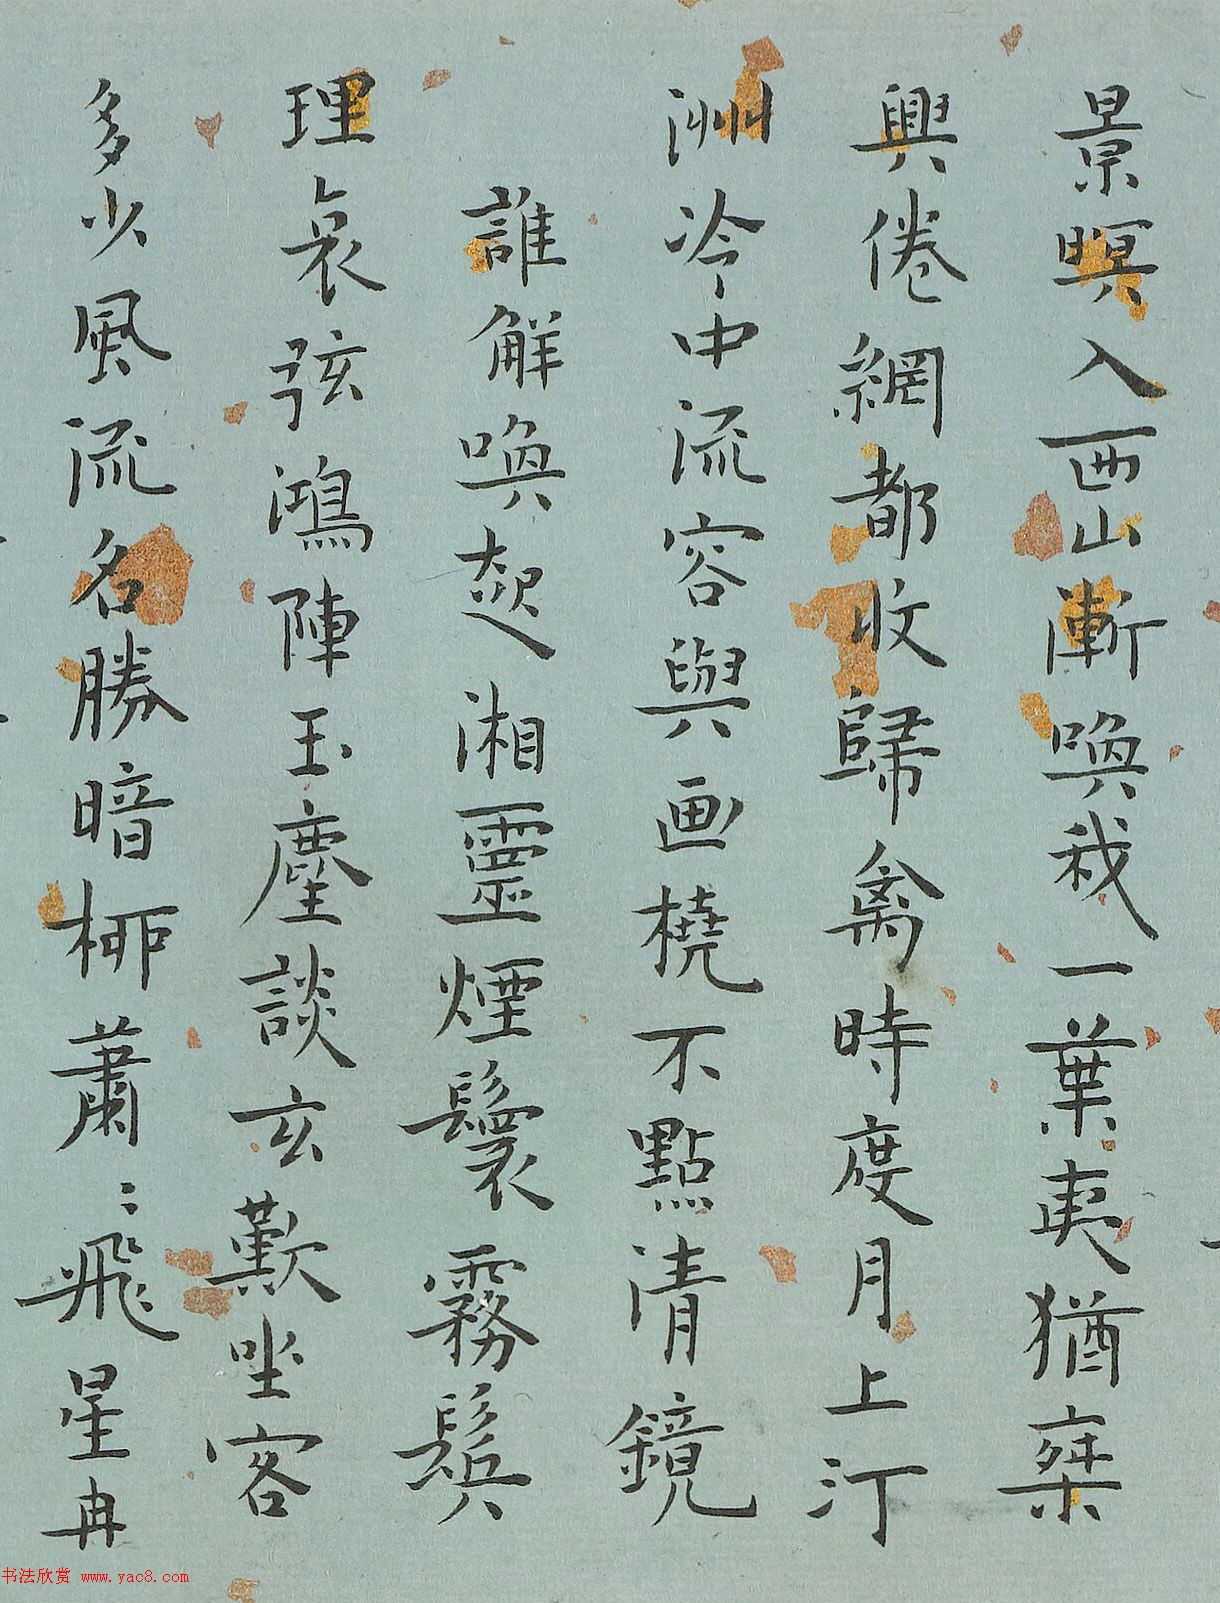 景暝入西山漸喚我一葉夷猶椉
興倦網都收歸禽時度月上汀
洲冷中流容與画橈不點清鏡
誰解喚起湘靈煙鬟霧鬢
理哀弦鴻陣玉麈談玄歎坐客
多少風流名勝暗柳蕭〻飛星冉
书法欣赏 www.yac8.com